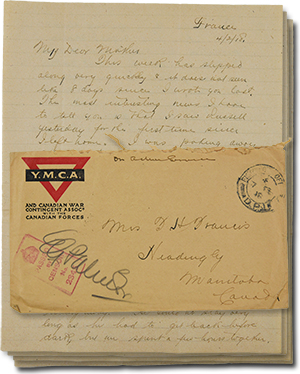 France
4/2/18.
My Dear Mother
This week has slipped
along very quickly & it does not seem
like 8 days since I wrote you last.
The most interesting news I have
to tell you is that I saw Russell
yesterday for the first time since
I left home. I was
On Active Service
Y.M.C.A.
AND CANADIAN WAR
CONTINGENT ASSOCN
WITH THE
CANADIAN FORCES
Mrs T H Francis
Headingly
Manitoba
Canada
long as he had to get back before
dark, but we spent a few hours together.